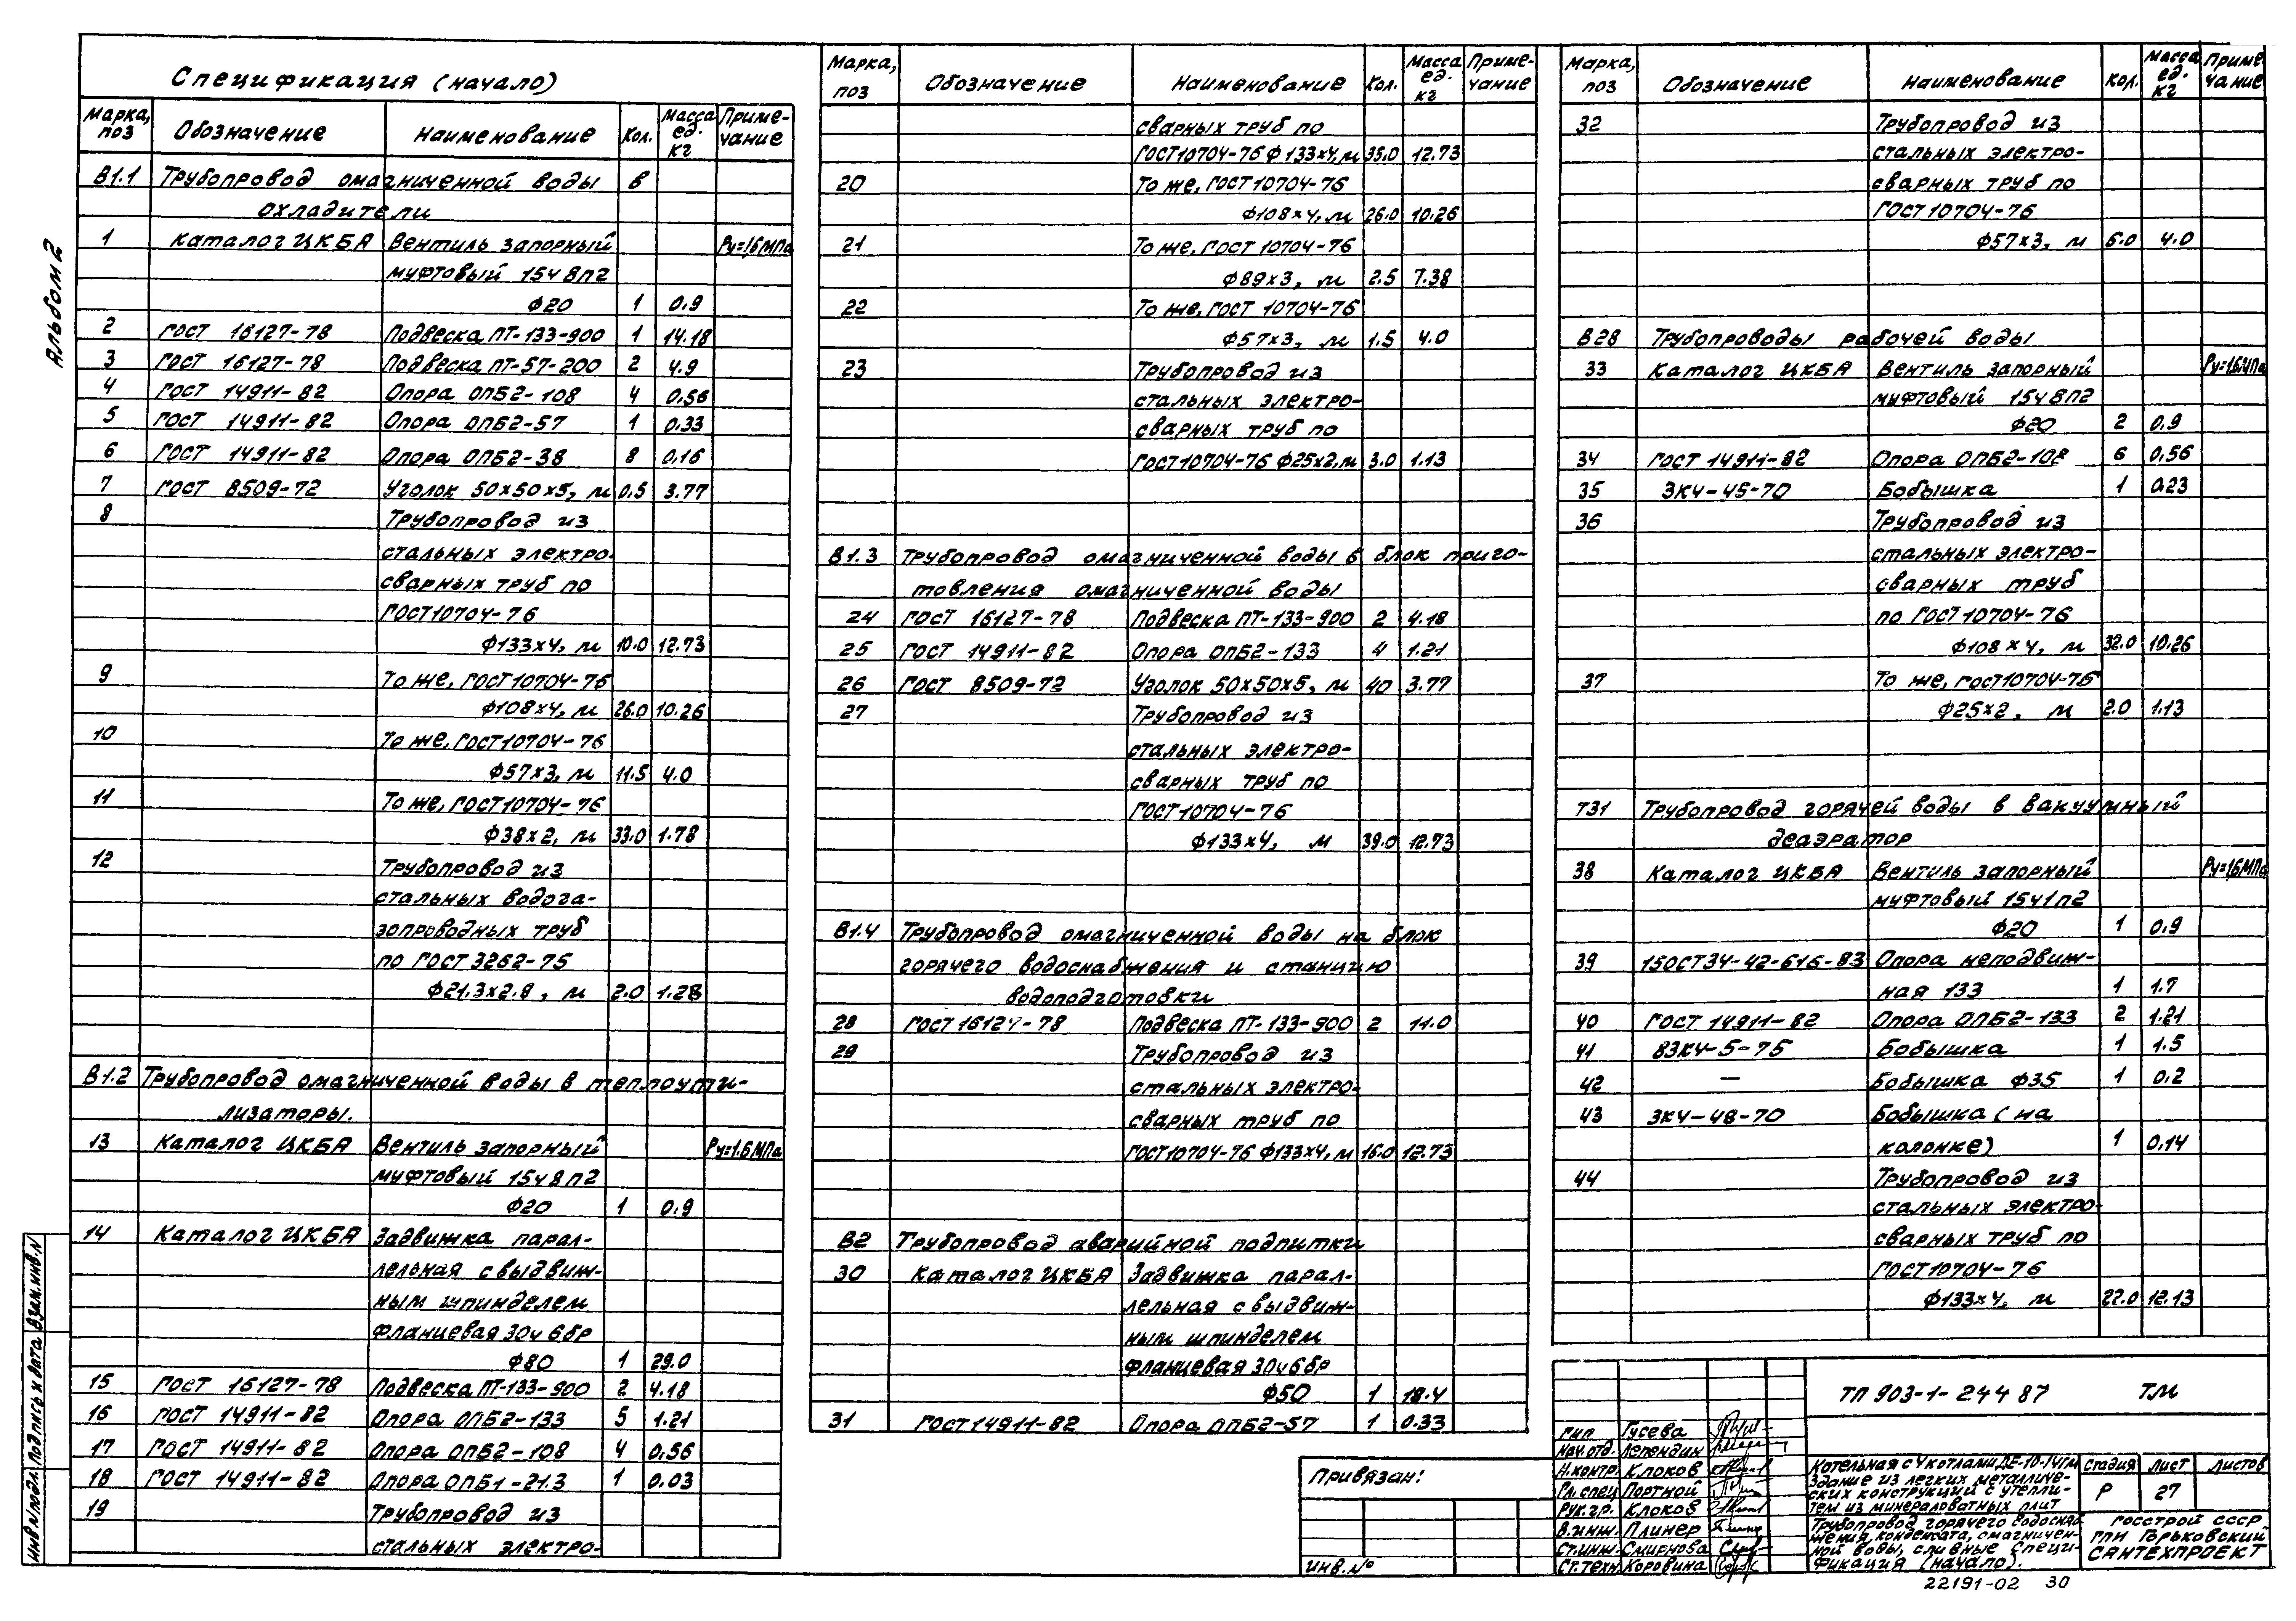 Альбом 2
Спецификация (начало)
Марка, поз Обозначение Наименование Кол. Масса ед. кг Приме-чание
В1.1 Трубопровод омагниченной воды в
охладители
1 Каталог ЦКБА Вентиль запорный Ру=1,6 МПа
муфтовый 15ч 8п2
ф20 1 0.9
2 ГОСТ 16127-78 Подвеска ПТ-133-900 1 14.18
3 ГОСТ 16127-78 Подвеска ПТ-57-200 2 4.9
4 ГОСТ 14911-82 Опора ОПБ2-108 4 0.56
5 ГОСТ 14911-82 Опора ОПБ2-57 1 0.33
6 ГОСТ 14911-82 Опора ОПБ2-38 8 0.16
7 ГОСТ 8509-72 Уголок 50х50х5, м 0.5 3.77
8 Трубопровод из
стальных электро-
сварных труб по
ГОСТ10704-76
ф133х4, м 10.0 12.73
9 То же, ГОСТ10704-76
ф108х4, м 26.0 10.26
10 То же, ГОСТ10704-76
ф57х3, м 11.5 4.0
11 То же, ГОСТ10704-76
ф38х2, м 33.0 1.78
12 Трубопровод из
стальных водога-
зопроводных труб
по ГОСТ 3262-75
ф21.3х2.8, м 2.0 1.28
В1.2 Трубопровод омагниченной воды в теплоути-
лизаторы.
13 Каталог ЦКБА Вентиль запорный Ру=1.6 МПа
муфтовый 15ч 8п2
ф20 1 0.9
14 Каталог ЦКБА Задвижка парал-
лельная с выдвиж-
ным шпинделем
фланцевая 30ч 6бр
ф80 1 29.0
15 ГОСТ 16127-78 Подвеска ПТ-133-900 2 4.18
16 ГОСТ 14911-82 Опора ОПБ2-133 5 1.21
17 ГОСТ 14911-82 Опора ОПБ2-108 4 0.56
18 ГОСТ 14911-82 Опора ОПБ1-21.3 1 0.03
19 Трубопровод из
стальных электро-
Марка, поз Обозначение Наименование Кол. Масса ед. кг Приме-чание
сварных труб по
ГОСТ10704-76 ф133х4, м 35.0 12.73
20 То же, ГОСТ 10704-76
ф108х4, м 26.0 10.26
21 То же, ГОСТ 10704-76
ф89х3, м 2.5 7.38
22 То же, ГОСТ 10704-76
ф57х3, м 1.5 4.0
23 Трубопровод из
стальных электро-
сварных труб по
ГОСТ10704-76 ф25х2, м 3.0 1.13
В1.3 Трубопровод омагниченной воды в блок приго-
товления омагниченной воды
24 ГОСТ 16127-78 Подвеска ПТ-133-900 2 4.18
25 ГОСТ 14911-82 Опора ОПБ2-133 4 1.21
26 ГОСТ 8509-72 Уголок 50х50х5, м 40 3.77
27 Трубопровод из
стальных электро-
сварных труб по
ГОСТ10704-76
ф133х4, м 39.0 12.73
В1.4 Трубопровод омагниченной воды на блок
горячего водоснабжения и станцию
водоподготовки
28 ГОСТ 16127-78 Подвеска ПТ-133-900 2 11.0
29 Трубопровод из
стальных электро-
сварных труб по
ГОСТ10704-76 ф133х4, м 16.0 12.73
В2 Трубопровод аварийной подпитки
30 Каталог ЦКБА Задвижка парал-
лельная с выдвиж-
ным шпинделем
фланцевая 30ч6бр
ф50 1 18.4
31 ГОСТ 14911-82 Опора ОПБ2-57 1 0.33
Марка, поз Обозначение Наименование Кол. Масса ед. кг Приме-чание
32 Трубопровод из
стальных электро-
сварных труб по
ГОСТ 10704-76
ф57х3, м 6.0 4.0
В28 Трубопроводы рабочей воды
33 Каталог ЦКБА Вентиль запорный Ру=1.6МПа
муфтовый 15ч 8п2
ф20 2 0.9
34 ГОСТ 14911-82 Опора ОПБ2-108 6 0.56
35 ЗК4-45-70 Бобышка 1 0.23
36 Трубопровод из
стальных электро-
сварных труб
по ГОСТ10704-76
ф108х4, м 32.0 10.26
37 То же, ГОСТ10704-76
ф25х2, м 2.0 1.13
Т31 Трубопровод горячей воды в вакуумный
деаэратор
38 Каталог ЦКБА Вентиль запорный Ру=1,6 МПа
муфтовый 15ч1п2
ф20 1 0.9
39 15ОСТ34-42-615-83 Опора неподвиж-
ная 133 1 1.7
40 ГОСТ 14911-82 Опора ОПБ2-133 2 1.21
41 83К4-5-75 Бобышка 1 1.5
42 — Бобышка ф35 1 0.2
43 ЗК4-48-70 Бобышка (на
колонке) 1 0.14
44 Трубопровод из
стальных электро-
сварных труб по
ГОСТ10704-76
ф133х4, м 22.0 12.13
ТП 903-1-244 87 ТМ
ГИП Гусева
Нач. отд. Лепендин
Н.контр. Клоков
Гл. спец Портной
Рук. гр. Клоков
В.инж. Плинер
Ст.инж. Смирнова
Ст. техн. Коровина
Котельная с 4 котлами ДЕ-10-14ГМ
Здание из легких металличе-
ских конструкций с утепли-
тем из минераловатных плит
Стадия Лист Листов
Р 27
Трубопровод горячего водосна
жения, конденсата, омагничен-
ной воды, сливные специ-
фикация (начало).
Госстрой СССР
ГПИ Горьковский
САНТЕХПРОЕКТ
Привязан:
Инв. №
Инв N подл. Подпись и дата Взам. инв. N
22191-02 30